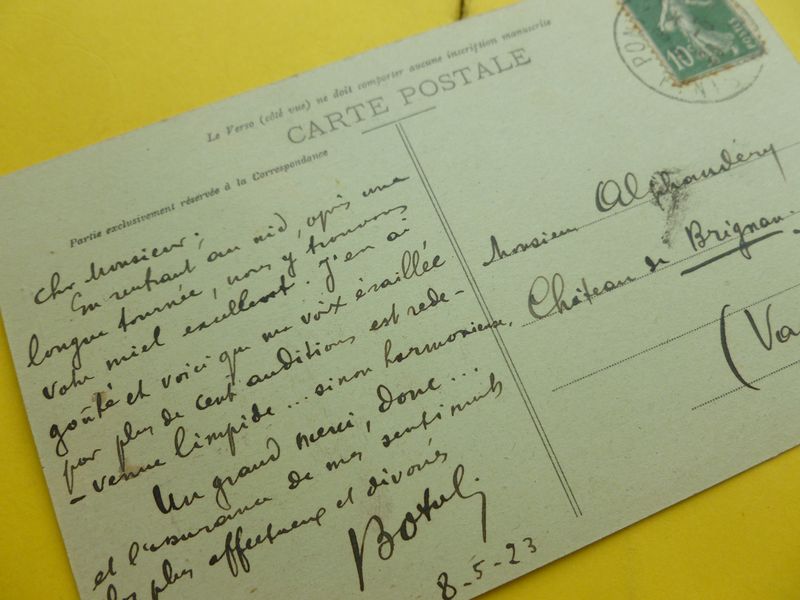 Le Verso (côté vue) ne doit comporter aucune inscription manuscrite
CARTE POSTALE
Partie exclusivement réservée à la Correspondance
Cher Monsieur,
En rentrant au nid, après une
longue tournée, nous y trouvons
votre miel excellent. J'en ai
goûté et voici que ma voix éraillée
par plus de cent auditions est rede-
-venue limpide... sinon harmonieuse.
Un grand merci, donc...
et l'assurance de mes sentiments
les plus affectueux et dévoués
8-5-23
10c
POSTES
Monsieur Alphandéry
Château de Brignan
(Va